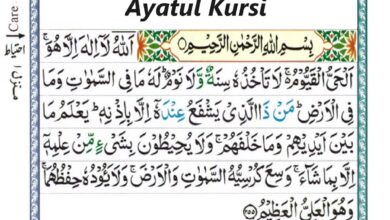 Ayatul Kursi
Care احتیاط
منزل ١
بِسْمِ اللهِ الرَّحْمٰنِ الرَّحِيْمِ ۝ اَللهُ لَاۤ اِلٰهَ اِلَّا هُوَ ۚ
اَلْحَىُّ الْقَيُّوْمُ ۚ لَا تَاْخُذُهٗ سِنَةٌ وَّلَا نَوْمٌ ؕ لَهٗ مَا فِى السَّمٰوٰتِ وَمَا
فِى الْاَرْضِ ؕ مَنْ ذَا الَّذِىْ يَشْفَعُ عِنْدَهٗۤ اِلَّا بِاِذْنِهٖ ؕ يَعْلَمُ مَا
بَيْنَ اَيْدِيْهِمْ وَمَا خَلْفَهُمْ ۚ وَلَا يُحِيْطُوْنَ بِشَىْءٍ مِّنْ عِلْمِهٖۤ
اِلَّا بِمَا شَآءَ ۚ وَسِعَ كُرْسِيُّهُ السَّمٰوٰتِ وَالْاَرْضَ ۚ وَلَا يَـُٔوْدُهٗ حِفْظُهُمَا ۚ
وَهُوَ الْعَلِىُّ الْعَظِيْمُ ۝٢٥٥